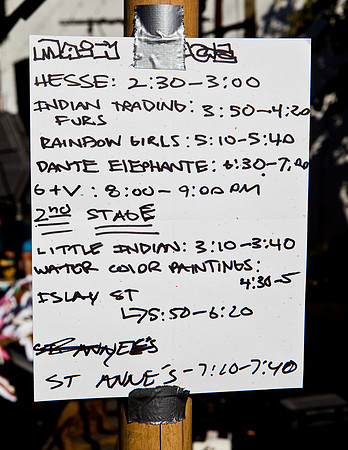 MAIN STAGE
HESSE: 2:30-3:00
INDIAN TRADING: 3:50-4:20
FURS
RAINBOW GIRLS: 5:10-5:40
DANTE ELEPHANTE: 6:30-7:00
G+V.: 8:00-9:00 PM
2nd STAGE
LITTLE INDIAN: 3:10-3:40
WATER COLOR PAINTINGS:
4:30-5
ISLAY ST
↳5:50-6:20
ST ANNE'S-7:10-7:40